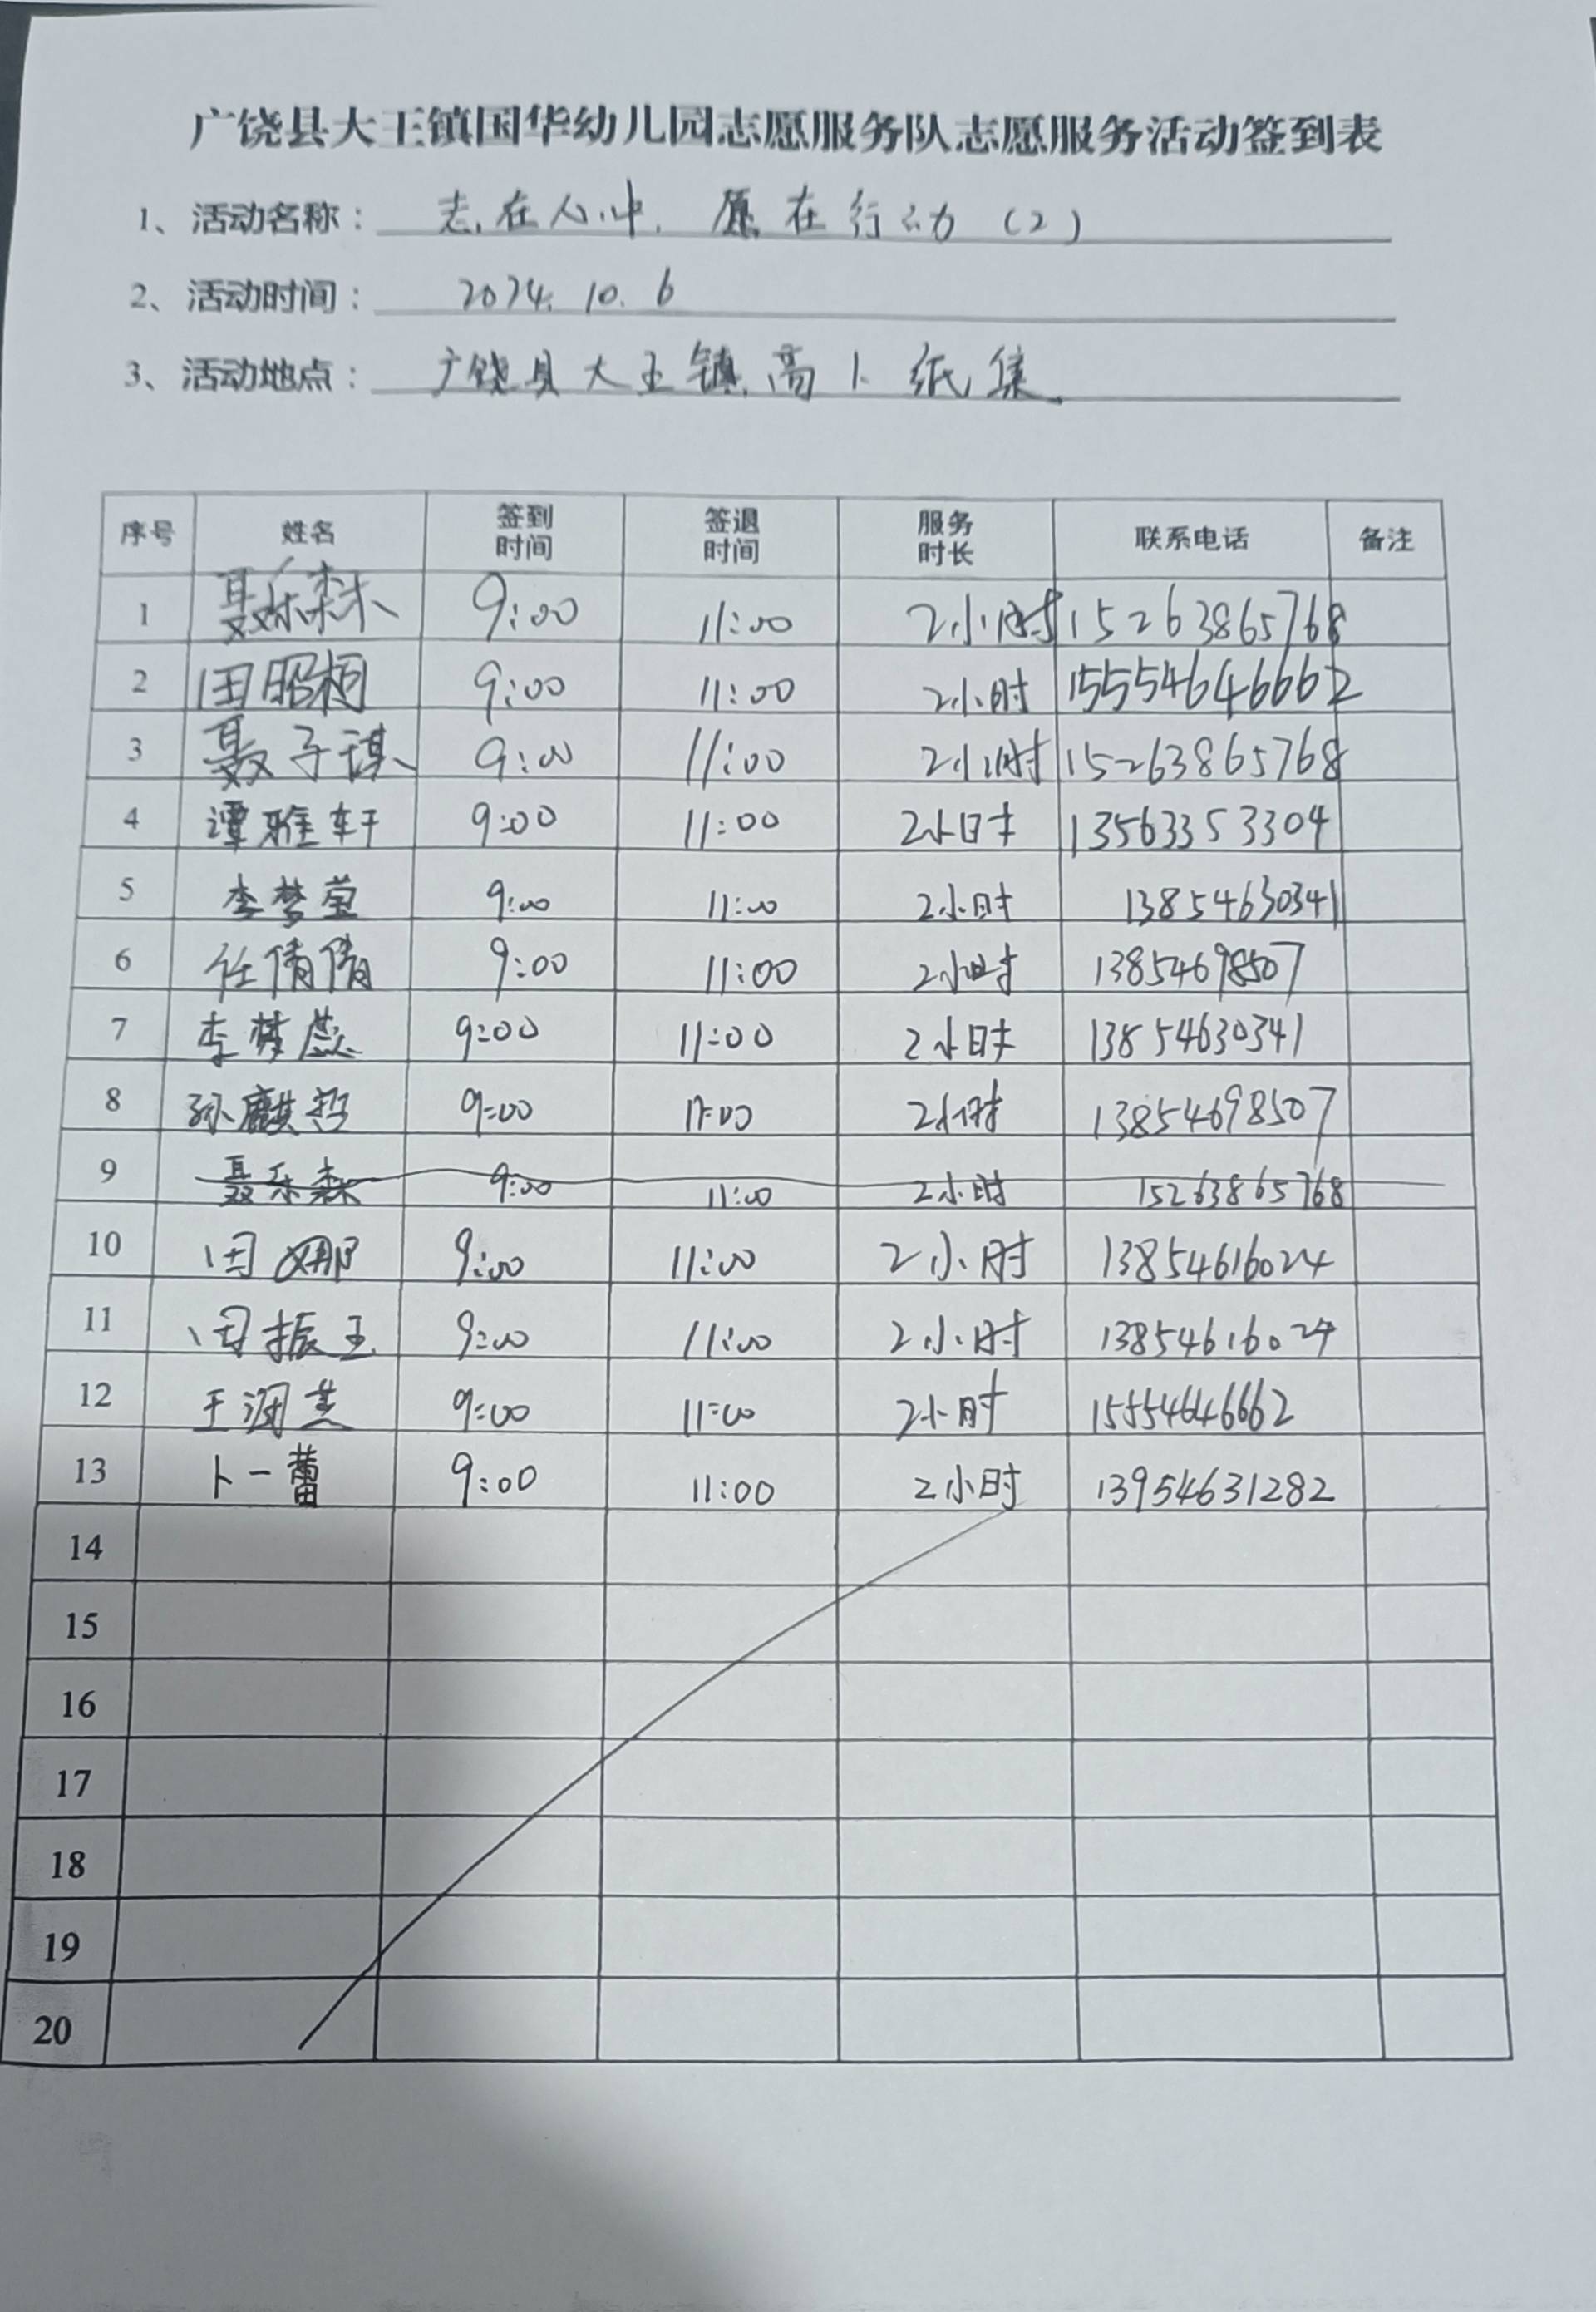 广饶县大王镇国华幼儿园志愿服务队志愿服务活动签到表
1、活动名称：志在心中，愿在行动（2）
2、活动时间：2024.10.6
3、活动地点：广饶县大王镇高卜纸集
序号 姓名 签到时间 签退时间 服务时长 联系电话 备注
1 聂乐森 9:00 11:00 2小时 15263865768
2 田昭桐 9:00 11:00 2小时 15554646662
3 聂子琪 9:00 11:00 2小时 15263865768
4 谭雅轩 9:00 11:00 2小时 13563353304
5 李梦莹 9:00 11:00 2小时 13854630341
6 任倩倩 9:00 11:00 2小时 13854698507
7 李梦蕊 9:00 11:00 2小时 13854630341
8 孙麒哲 9:00 11:00 2小时 13854698507
9 聂乐森 9:00 11:00 2小时 15263865768
10 田娜 9:00 11:00 2小时 13854616024
11 田振玉 9:00 11:00 2小时 13854616024
12 王润 9:00 11:00 2小时 15554646662
13 卜一蕾 9:00 11:00 2小时 13954631282
14
15
16
17
18
19
20